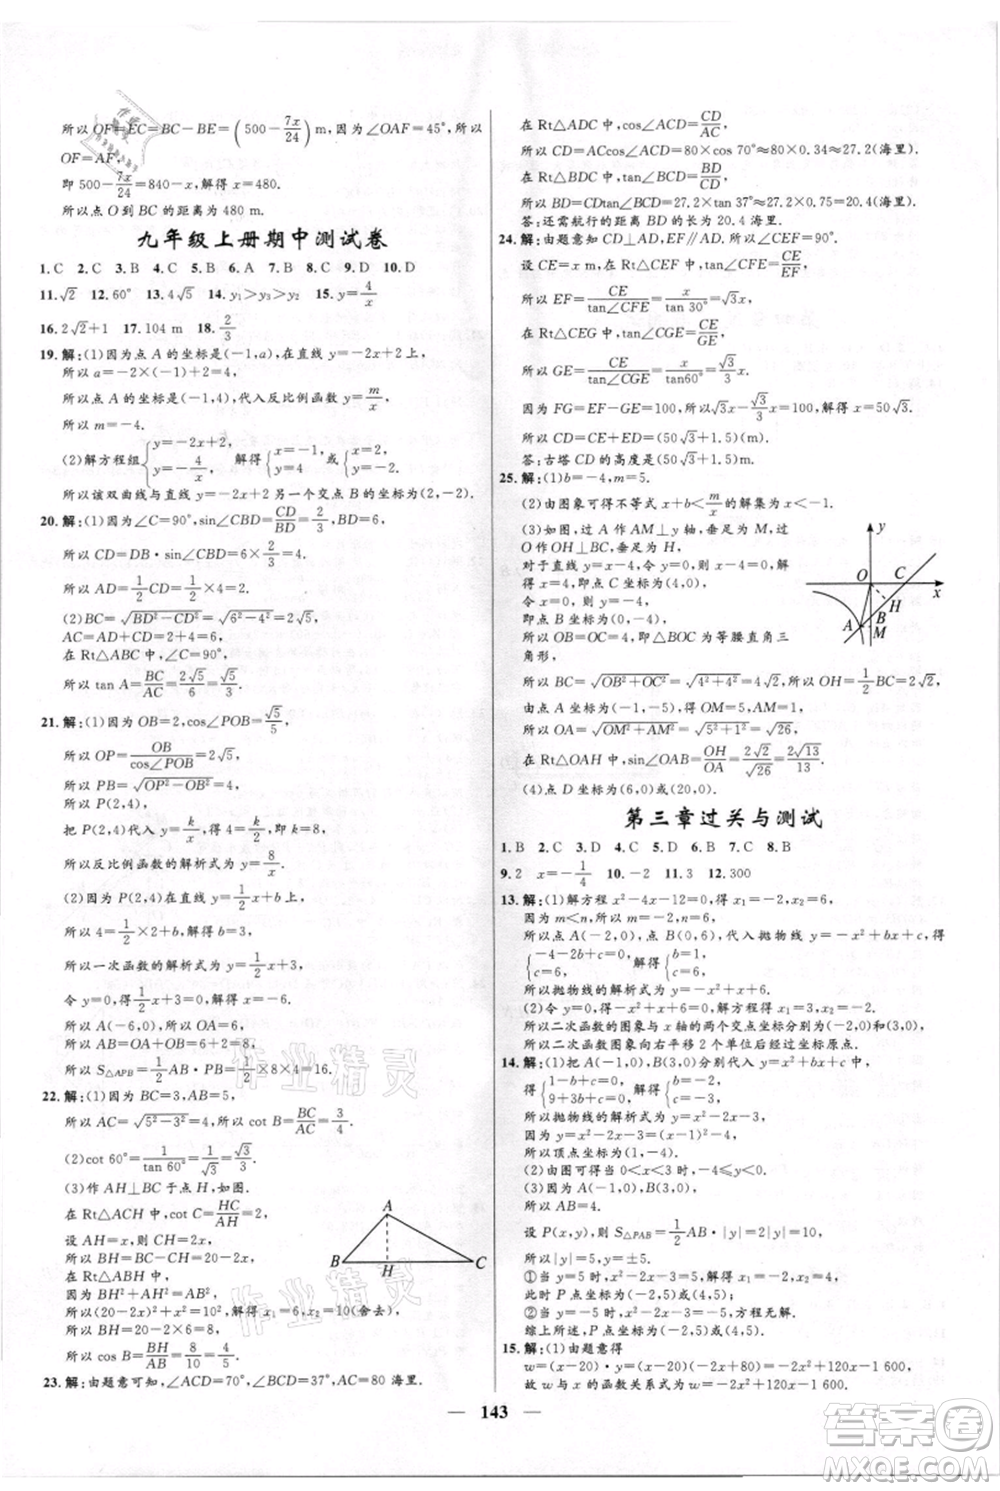 所以 OF=EC=BC-BE=(500-7x/24) m,因为∠OAF=45°,所以
OF=AF,
即 500-7x/24=840-x,解得 x=480.
所以点 O 到 BC 的距离为 480 m.
九年级上册期中测试卷
1.C 2.C 3.B 4.C 5.B 6.A 7.B 8.C 9.D 10.D
11.√2 12.60° 13.4√5 14.y₁>y₃>y₂ 15.y=4/x
16.2√2+1 17.104 m 18.2/3
19.解:(1)因为点 A 的坐标是(-1,a),在直线 y=-2x+2上,
所以 a=-2×(-1)+2=4,
所以点 A 的坐标是(-1,4),代入反比例函数 y=m/x,
所以 m=-4.
(2)解方程组{y=-2x+2, y=-4/x, 解得{x=-1, y=4 或{x=2, y=-2.
所以该双曲线与直线 y=-2x+2 另一个交点 B 的坐标为(2,-2).
20.解:(1)因为∠C=90°,sin∠CBD=CD/BD=2/3,BD=6,
所以 CD=DB·sin∠CBD=6×2/3=4.
所以 AD=1/2CD=1/2×4=2.
(2)BC=√(BD²-CD²)=√(6²-4²)=2√5,
AC=AD+CD=2+4=6,
在 Rt△ABC 中,∠C=90°,
所以 tan A=BC/AC=2√5/6=√5/3.
21.解:(1)因为 OB=2,cos∠POB=√5/5,
所以 OP=OB/cos∠POB=2√5,
所以 PB=√(OP²-OB²)=4,
所以 P(2,4),
把 P(2,4)代入 y=k/x,得 k/2=4,即 k=8,
所以反比例函数的解析式为 y=8/x.
(2)因为 P(2,4)在 y=1/2x+b 上,
所以 4=1/2×2+b,所以 b=3,
所以一次函数的解析式为 y=1/2x+3,
令 y=0,得1/2x+3=0,解得 x=-6,
所以 A(-6,0),所以 OA=6,
所以 AB=OA+OB=6+2=8,
所以 S△APB=1/2AB·PB=1/2×8×4=16.
22.解:(1)因为 BC=3,AB=5,
所以 AC=√(5²-3²)=4,所以 cot B=BC/AC=3/4.
(2)cot 60°=1/tan 60°=1/√3=√3/3.
(3)作 AH⊥BC 于点 H,如图.
在 Rt△ACH 中,cot C=HC/AH=2,
设 AH=x,则 CH=2x,
所以 BH=BC-CH=20-2x,
在 Rt△ABH 中,
因为 BH²+AH²=AB²,
所以(20-2x)²+x²=10²,解得 x₁=6,x₂=10(舍去),
所以 BH=20-2×6=8,
所以 cos B=BH/AB=8/10=4/5.
A
B
H
C
23.解:由题意可知,∠ACD=70°,∠BCD=37°,AC=80 海里.
在 Rt△ADC 中,cos∠ACD=CD/AC,
所以 CD=ACcos∠ACD=80×cos 70°≈80×0.34≈27.2(海里).
在 Rt△BDC 中,tan∠BCD=BD/CD,
所以 BD=CDtan∠BCD=27.2×tan 37°≈27.2×0.75=20.4(海里).
答:还需航行的距离 BD 的长为 20.4 海里.
24.解:由题意知 CD⊥AD,EF∥AD,所以∠CEF=90°.
设 CE=x m,在 Rt△CEF 中,tan∠CFE=CE/EF,
所以 EF=CE/tan∠CFE=x/tan 30°=√3x,
在 Rt△CEG 中,tan∠CGE=CE/GE,
所以 GE=CE/tan∠CGE=x/tan60°=√3/3x,
因为 FG=EF-GE=100,所以√3x-√3/3x=100,解得 x=50√3,
所以 CD=CE+ED=(50√3+1.5)(m).
答:古塔 CD 的高度是(50√3+1.5)m.
25.解:(1)b=-4,m=5.
(2)由图象可得不等式 x+b<m/x的解集为 x<-1.
(3)如图,过 A 作 AM⊥y 轴,垂足为 M,过
O 作 OH⊥BC,垂足为 H.
对于直线 y=x-4,
令 y=0,则 x=4,即点 C 坐标为(4,0),
令 x=0,则 y=-4,
即点 B 坐标为(0,-4),
所以 OB=OC=4,即△BOC 为等腰直角三
角形,
所以 BC=√(OB²+OC²)=√(4²+4²)=4√2,所以 OH=1/2BC=2√2,
由点 A(-1,-5),得 OM=5,AM=1,
所以 OA=√(OM²+AM²)=√(5²+1²)=√26,
在 Rt△OAH 中,sin∠OAB=OH/OA=2√2/√26=2√13/13.
(4)点 D 坐标为(6,0)或(20,0).
y
O
C
x
H
A
B
M
第三章过关与测试
1.B 2.C 3.D 4.C 5.D 6.B 7.C 8.B
9.2 x=-1/4 10.-2 11.3 12.300
13.解:(1)解方程 x²-4x-12=0,得 x=-2 或 x=6,
因为 m<n,所以 m=-2,n=6,
所以点 A(-2,0),点 B(0,6),代入抛物线 y=-x²+bx+c 得
{-4-2b+c=0, c=6, 解得{b=1, c=6.
所以抛物线的解析式为 y=-x²+x+6.
(2)令 y=0,得-x²+x+6=0,解方程得 x₁=3,x₂=-2,
所以二次函数的图象与 x 轴的两个交点坐标为(3,0),(-2,0).
所以二次函数图象向右平移 2 个单位后经过坐标原点.
14.解:(1)把 A(-1,0),B(3,0)分别代入 y=x²+bx+c 中,
得{1-b+c=0, 9+3b+c=0, 解得{b=-2, c=-3.
所以抛物线的解析式为 y=x²-2x-3.
因为 y=x²-2x-3=(x-1)²-4,
所以顶点坐标为(1,-4).
(2)由图可得当 0<x<3 时,-4≤y<0.
(3)因为 A(-1,0),B(3,0),
所以 AB=4.
设 P(x,y),则 S△PAB=1/2AB·|y|=2|y|=10,
所以|y|=5,所以 y=±5.
①当 y=5 时,x²-2x-3=5,解得 x₁=-2,x₂=4,
此时 P 点坐标为(-2,5)或(4,5);
②当 y=-5 时,x²-2x-3=-5,方程无解.
综上所述,P 点坐标为(-2,5)或(4,5).
15.解:(1)由题意得
w=(x-20)·y=(x-20)(-2x+80)=-2x²+120x-1 600,
故 w 与 x 的函数关系式为 w=-2x²+120x-1 600.
143
作业精灵
作业精灵
答案圈
MXQE.COM